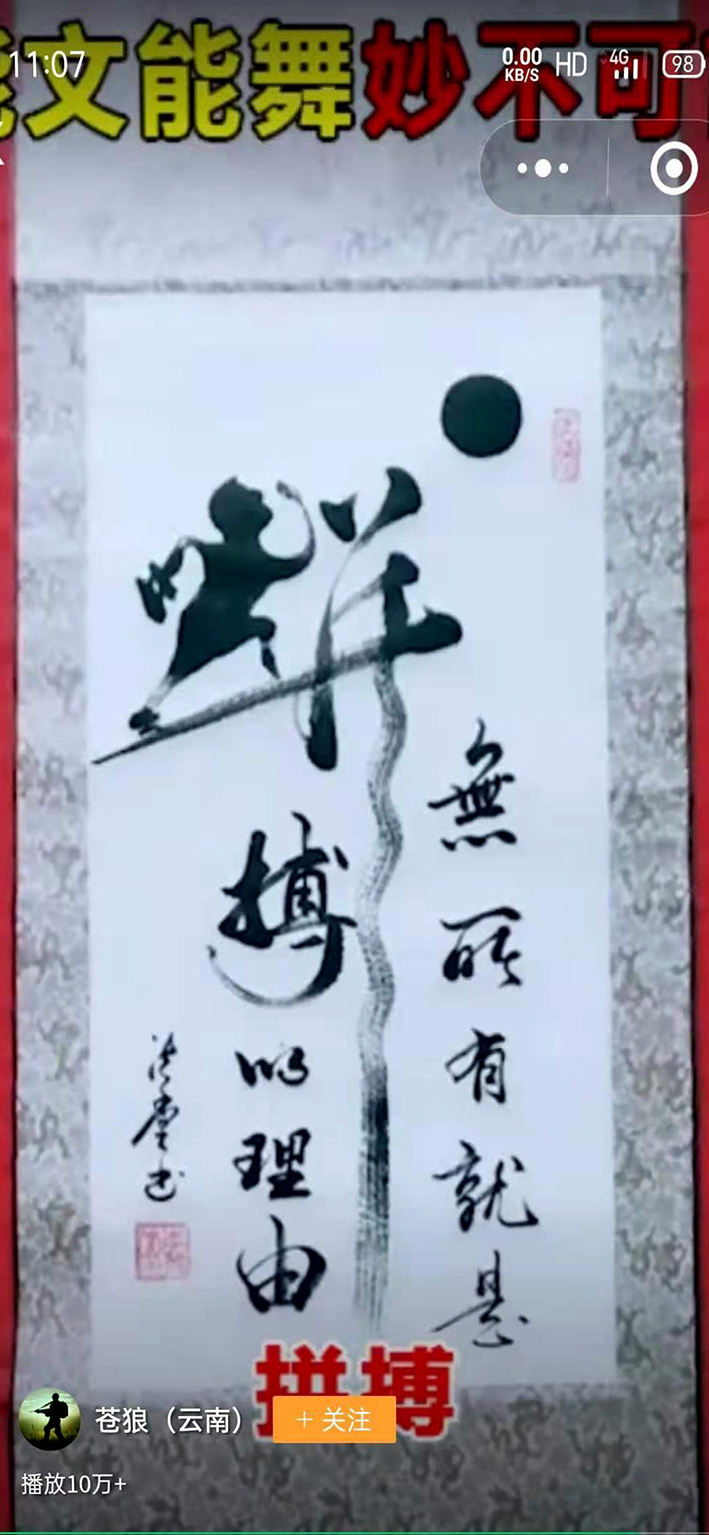 11:07
0.00 KB/S HD 4G 98
文能舞妙不可
拼
無所有就是
搏的理由
拼搏
苍狼（云南）
+ 关注
播放10万+